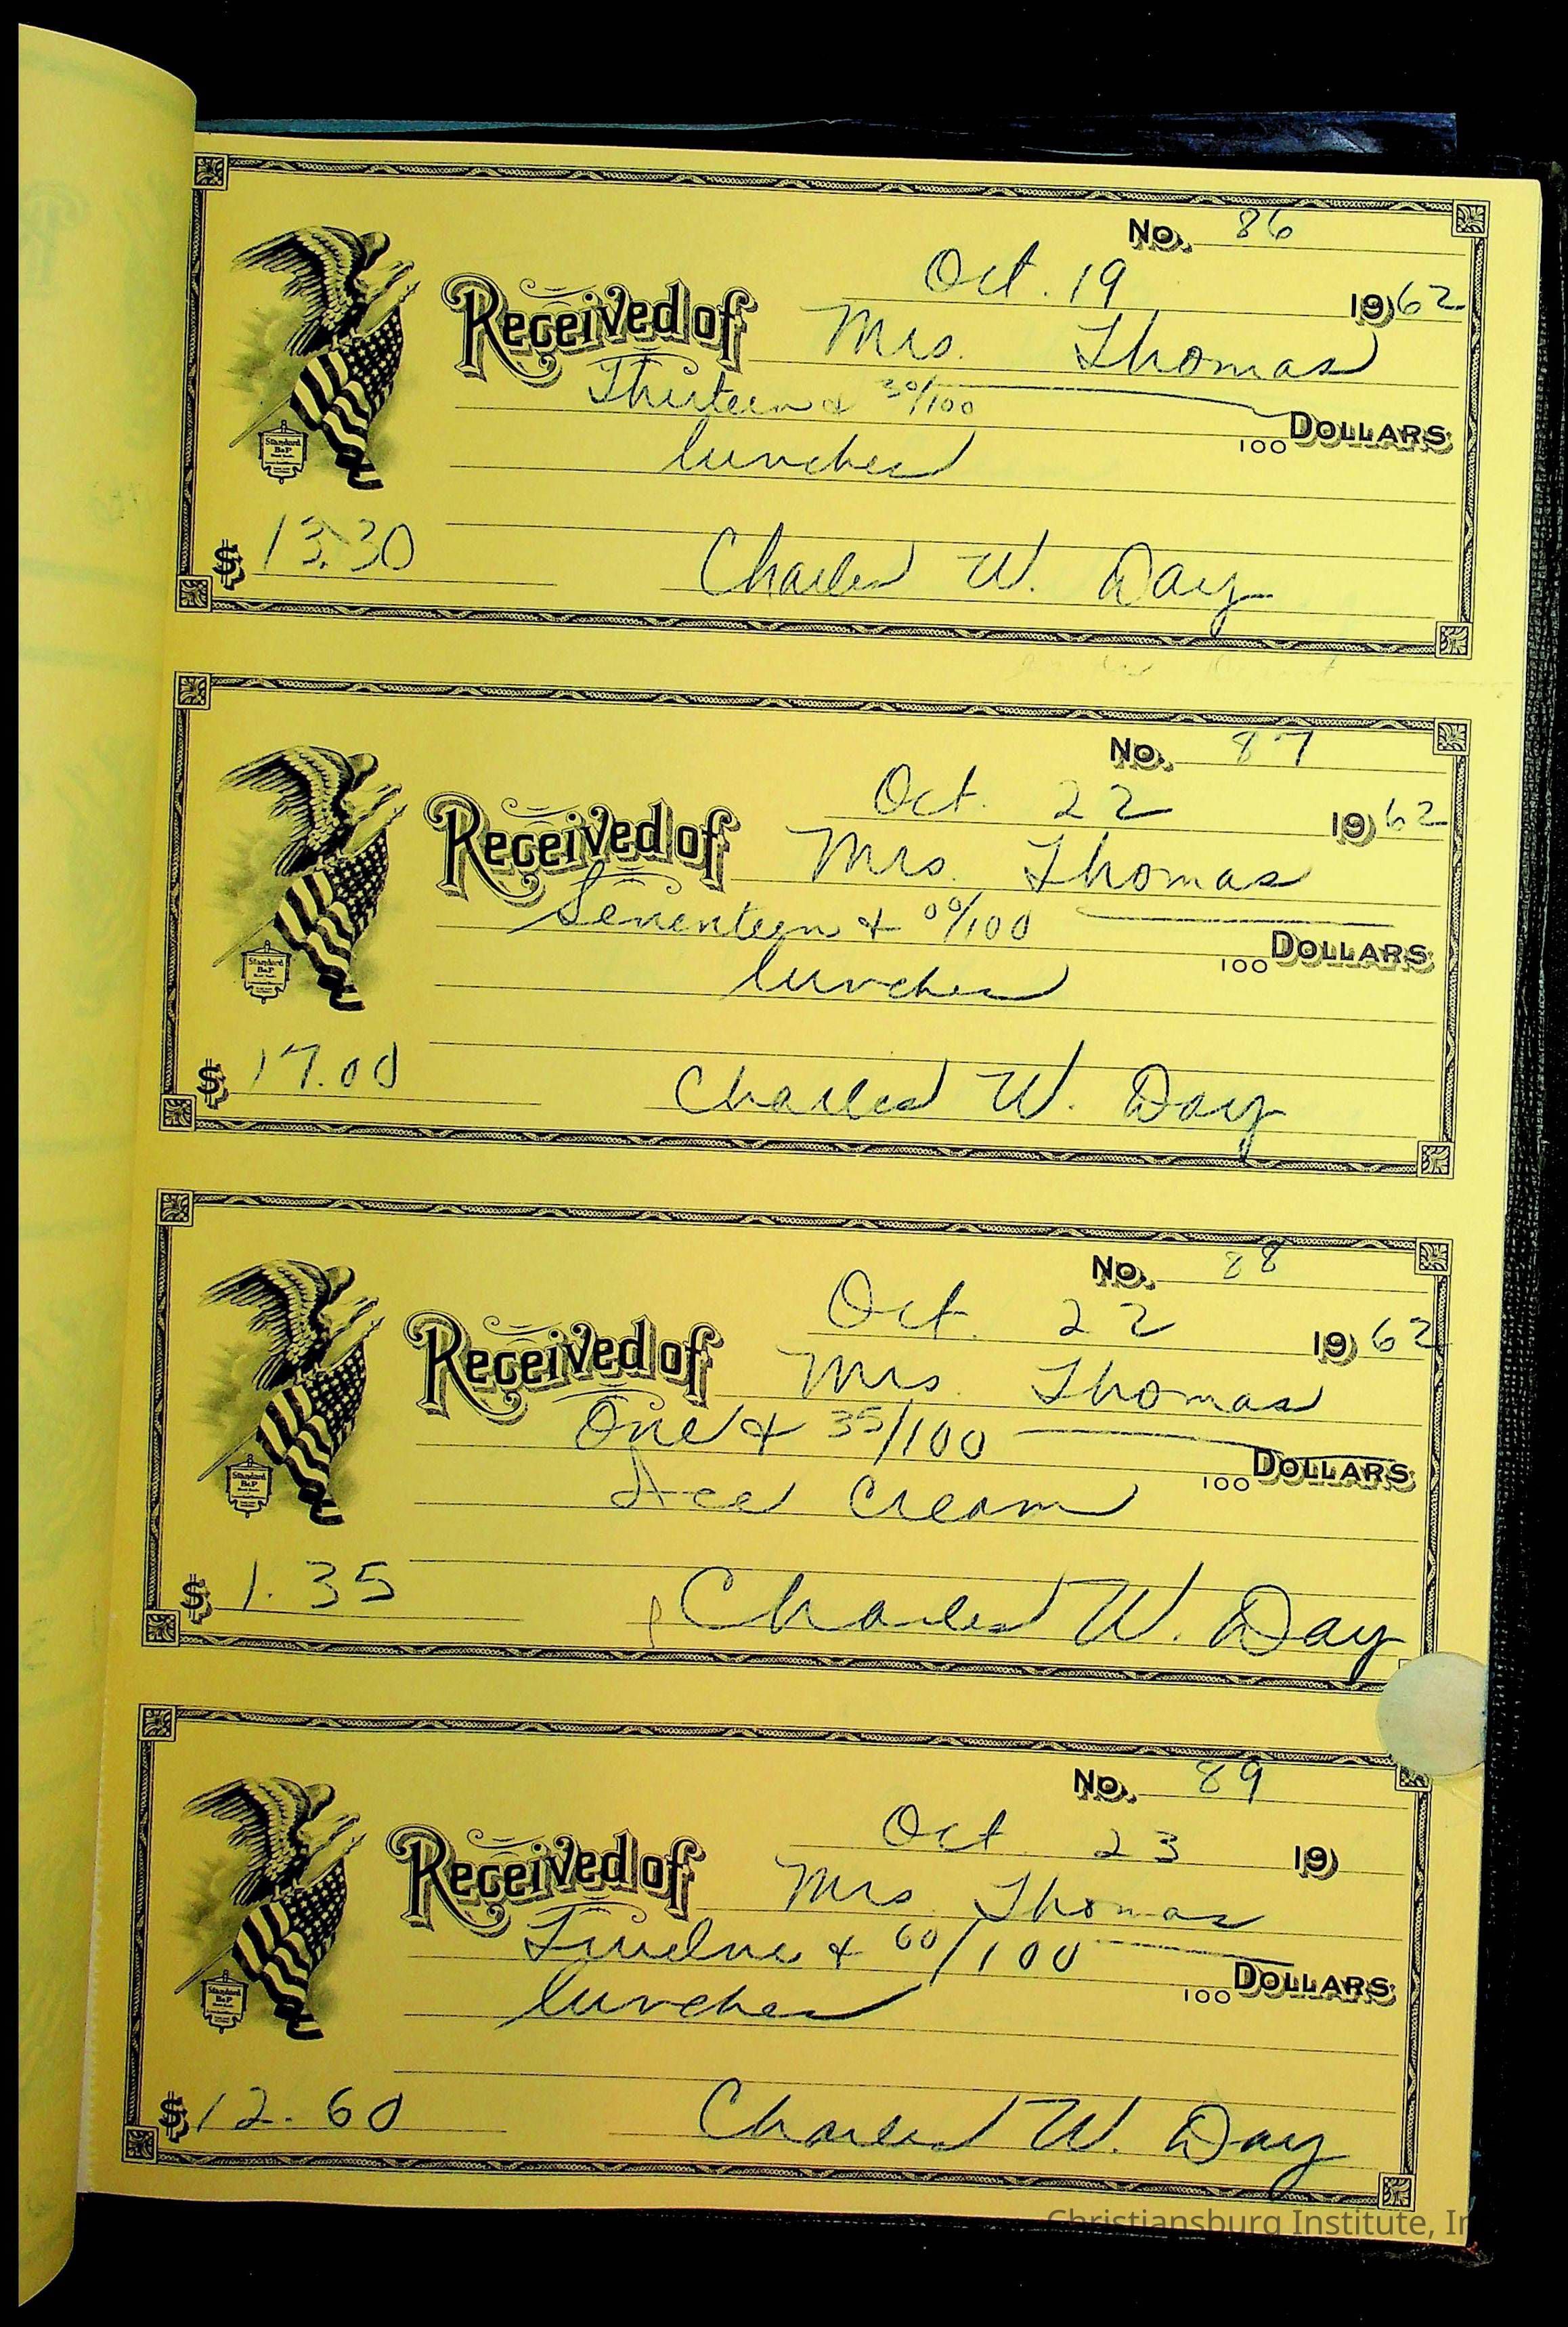 No. 86
Oct. 19 1962
Received of Mrs. Thomas
Thirteen & 30/100
100 DOLLARS
lunches
Standard
B&P
$ 13.30
Charles W. Day
No. 87
Oct. 22 1962
Received of Mrs. Thomas
Seventeen & 00/100
100 DOLLARS
lunches
Standard
B&P
$ 17.00
Charles W. Day
No. 88
Oct. 22 1962
Received of Mrs. Thomas
One & 35/100
100 DOLLARS
Ice Cream
Standard
B&P
$ 1.35
Charles W. Day
No. 89
Oct 23 19
Received of Mrs Thomas
Twelve & 60/100
100 DOLLARS
lunches
Standard
B&P
$ 12.60
Charles W. Day
Christiansburg Institute, In